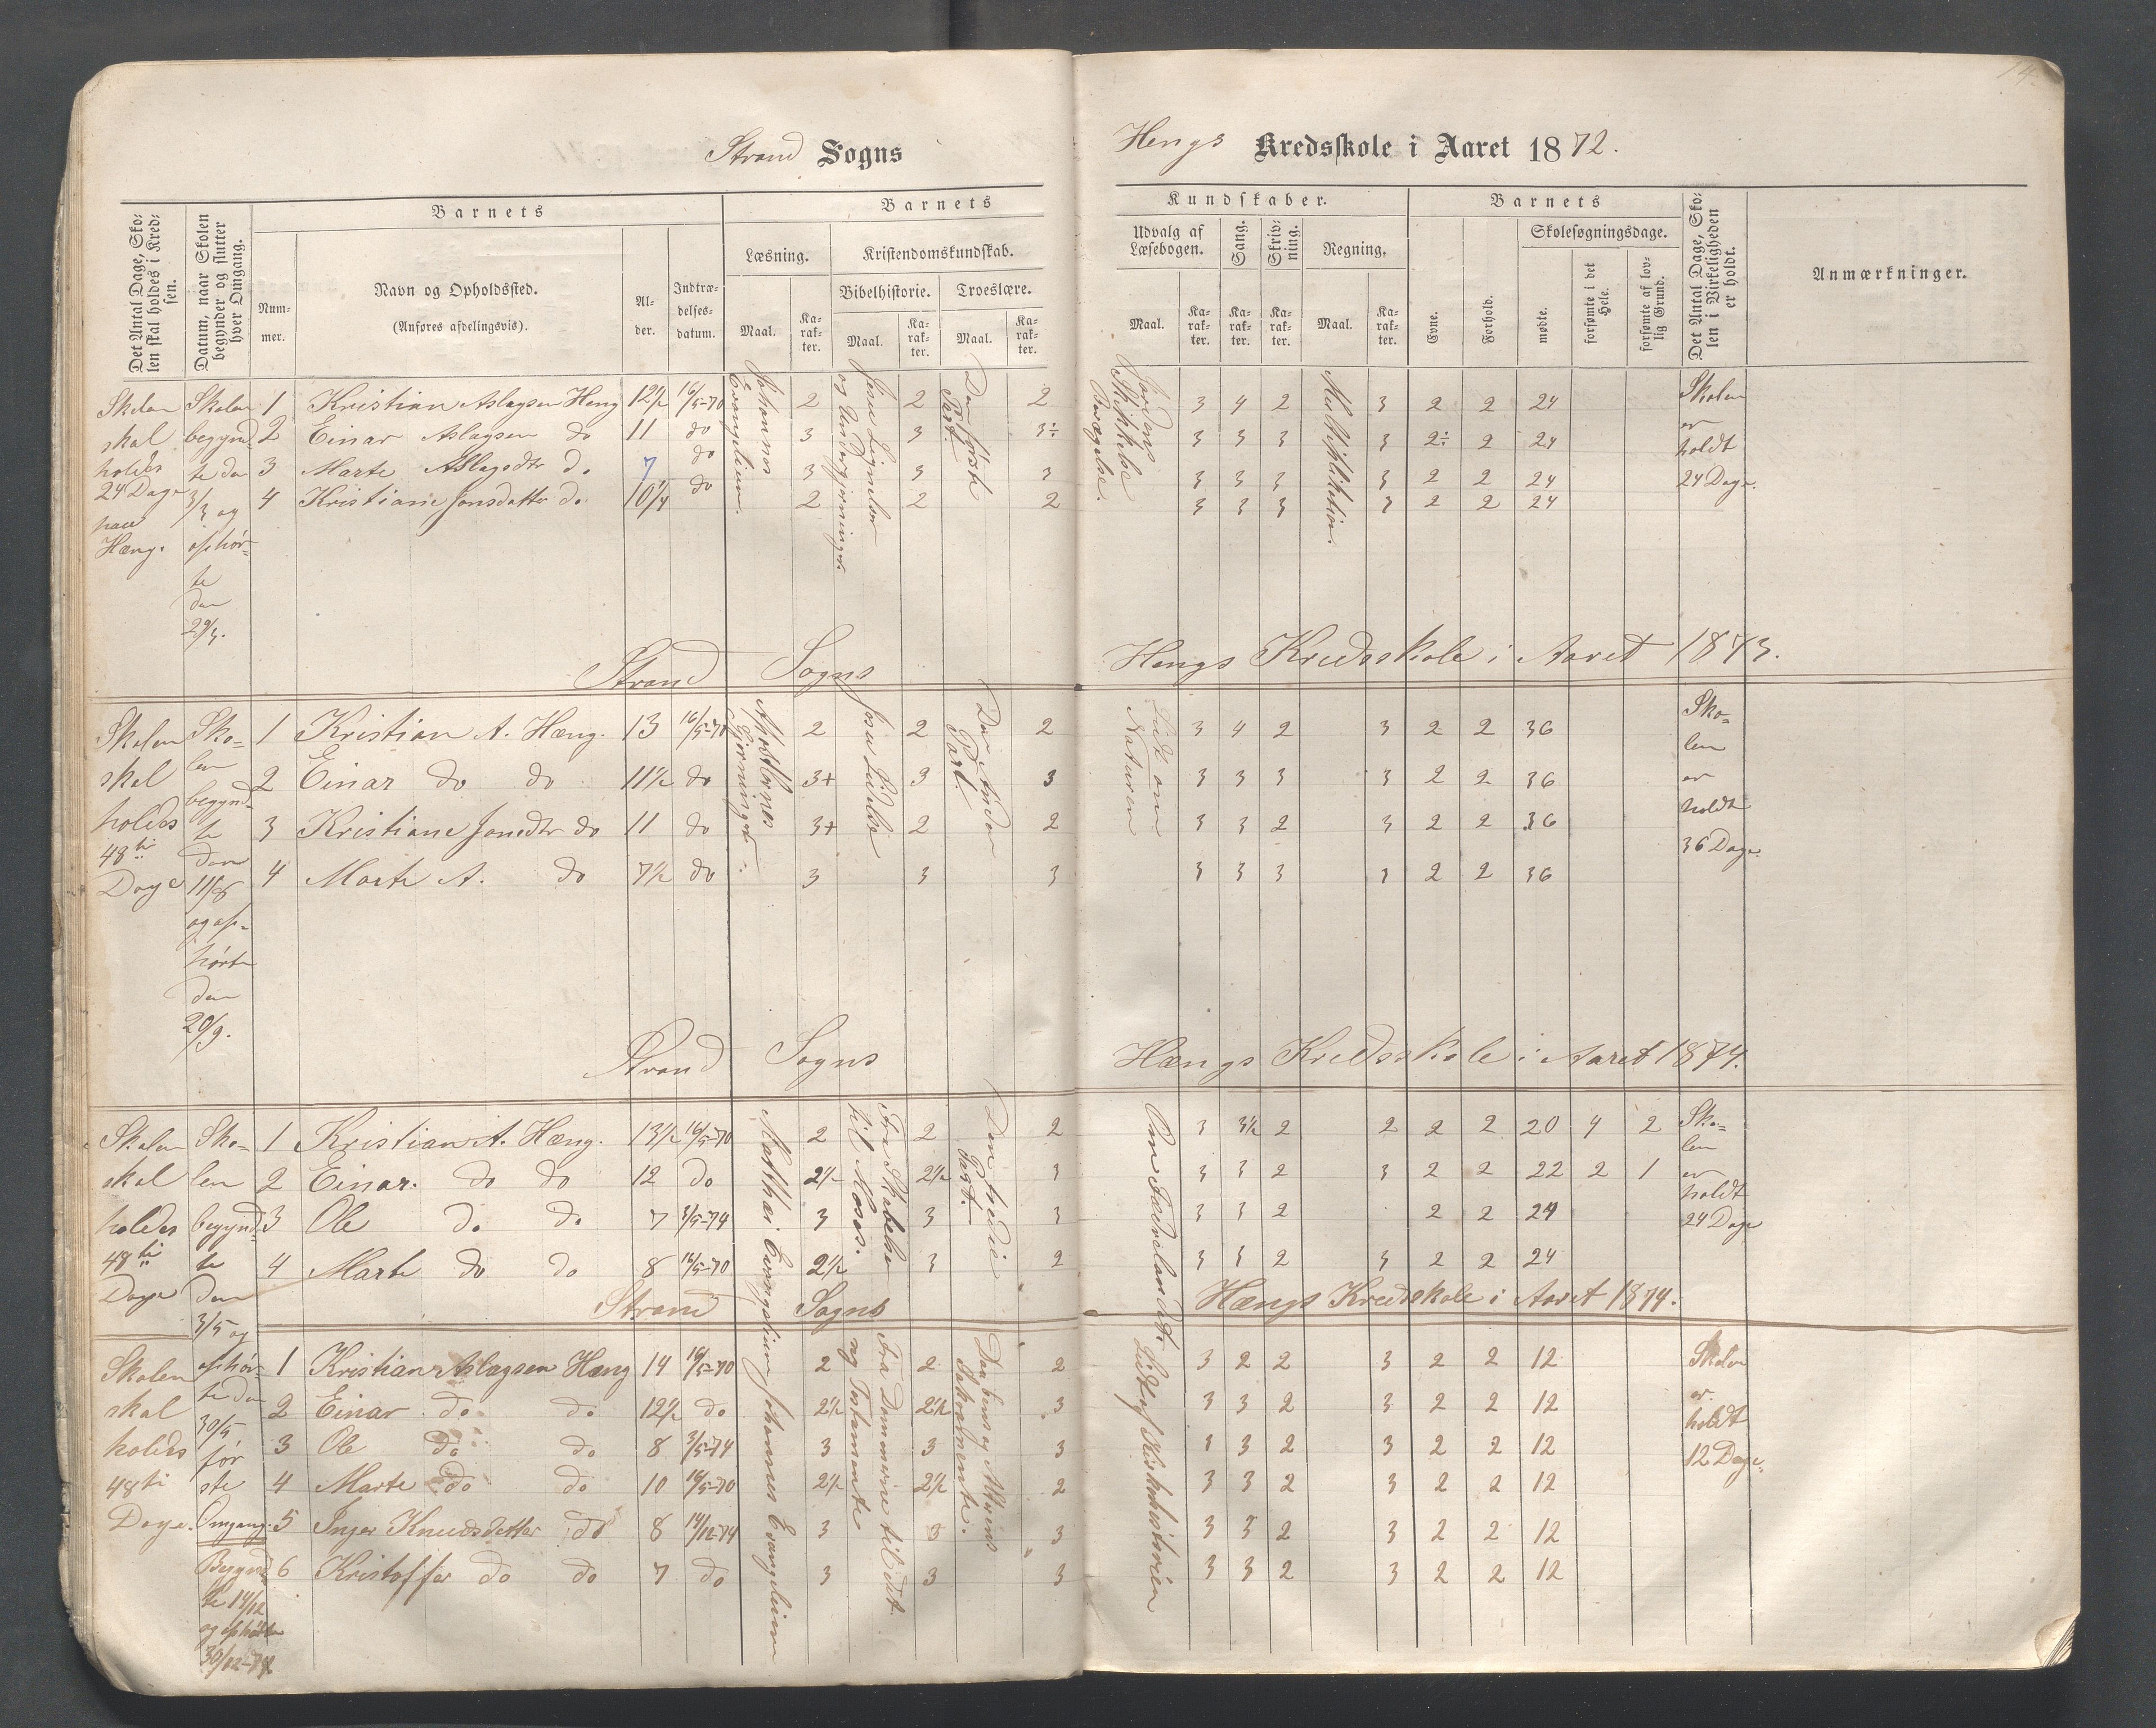 14
Strand Sogns
Hengs Kredsskole i Aaret 1872.
Det Antal Dage, Skolen skal holdes i Kredsen.
Datum, naar Skolen begynder og slutter hver Omgang.
Barnets
Nummer.
Navn og Opholdssted.
(Anføres afdelingsvis).
Alder.
Indtrædelsesdatum.
Barnets
Læsning.
Maal.
Karakter.
Kristendomskundskab.
Bibelhistorie.
Maal.
Karakter.
Troeslære.
Maal.
Karakter.
Kundskaber.
Udvalg af Læsebogen.
Maal.
Karakter.
Sang.
Karakter.
Skrivning.
Karakter.
Regning.
Maal.
Karakter.
Barnets
Evne.
Forhold.
Skolesøgningsdage.
mødte.
forsømte i det Hele.
forsømte af lovlig Grund.
Det Antal Dage, Skolen i Virkeligheden er holdt.
Anmærkninger.
Skolen skal holdes 24 Dage paa Hæng.
Skolen begyndte den 3/3 og ophørte den 29/3.
Johannes Evangelium.
Jesu Lignelser og Undergjerninger.
Den første Part.
Jordens Skikkelse Bevægelse.
Multiplikation.
1 Kristian Aslagsen Heng 12 1/2 16/5-70 2 2 2 3 4 2 3 2 2 24
2 Einar Aslagsen do 11 do 3 3 3÷ 3 3 3 3 2÷ 2 24
3 Marte Aslagsdtr do 7 do 3 3 3 3 3 3 3 2 2 24
4 Kristiane Jonsdatter do 10 1/4 do 2 2 2 3 3 3 3 2 2 24
Skolen er holdt 24 Dage.
Strand Sogns
Hengs Kredsskole i Aaret 1873.
Skolen skal holdes 48ti Dage
Skolen begyndte den 11/8 og ophørte den 20/9.
Apostlernes Gjerninger.
Jesu Lidelse
Den Anden Part.
Lidt om Naturen
1 Kristian A. Hæng. 13 16/5-70 2 2 2 3 4 2 3 2 2 36
2 Einar do do 11 1/2 do 3+ 3 3 3 3 3 3 2 2 36
3 Kristiane Jonsdtr do 11 do 3+ 2 2 3 3 2 3 2 2 36
4 Marte A. do 7 1/2 do 3 3 3 3 3 3 3 2 2 36
Skolen er holdt 36 Dage.
Strand Sogns
Hængs Kredsskole i Aaret 1874.
Skolen skal holdes 48ti Dage
Skolen begyndte den 3/5 og ophørte den 30/5, første Omgang.
Matthæi Evangelium
Fra Skabelse til Moses.
Den tredie Part.
Om Fædrelandet.
1 Kristian A. Hæng. 13 1/2 16/5-70 2 2 2 3 3 1/2 2 2 2 2 20 4 2
2 Einar. do do 12 do 2 1/2 2 1/2 3 3 3 2 3 2 2 22 2 1
3 Ole do do 7 3/5-74 3 3 3 3 3 2 2 2 24
4 Marte do do 8 16/5-70 2 1/2 3 2 3 3 2 3 2 2 24
Skolen er holdt 24 Dage
Strand Sogns
Hængs Kredskole i Aaret 1874.
Skolen skal holdes 48ti Dage.
Begyndte 14/12 og ophørte 30/12-74
Johannes Evangelium
Fra Dommerne til det ny Testamente
Daabens og Alterens Sakramente.
Lidt af Kirkehistorien
1 Kristian Aslagsen Hæng 14 16/5-70 2 2 2 3 2 2 3 2 2 12
2 Einar do do 12 1/2 do 2 1/2 2 1/2 3 3 3 2 3 2 2 12
3 Ole do do 8 3/5-74 3 3 3 3 3 2 3 2 2 12
4 Marte do do 10 16/5-70 2 1/2 2 1/2 2 3 3 2 3 2 2 12
5 Inger Knudsdatter do 8 14/12-74 3 3 3 3 3 2 3 2 2 12
6 Kristoffer do do 7 do 3 3 3 3 3 2 3 2 2 12
Skolen er holdt 12 Dage.